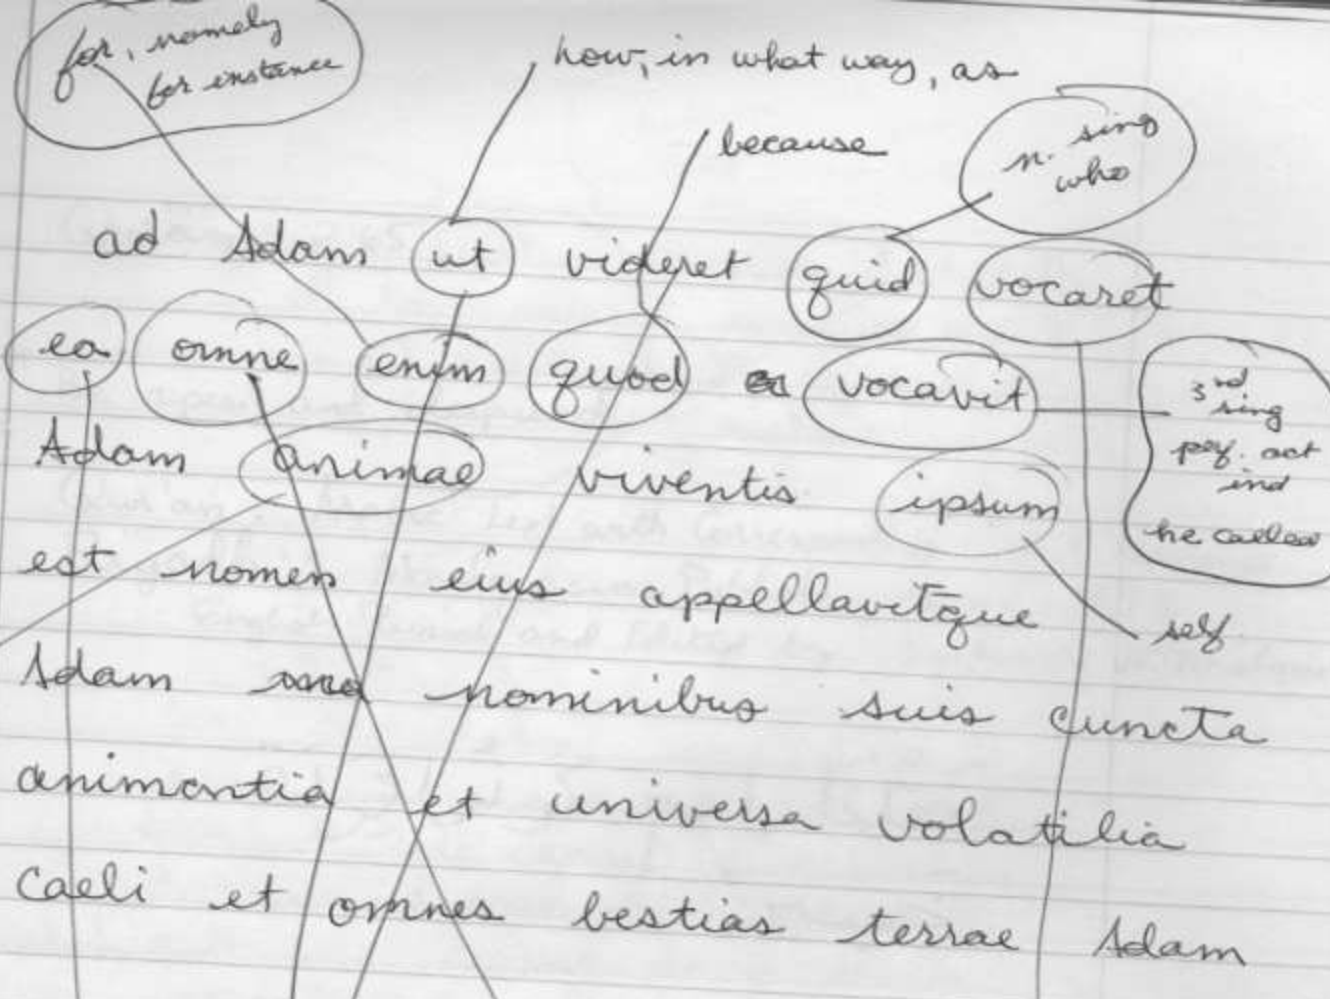 for, namely
for instance
how, in what way, as
because
n. sing
who
ad Adam ut videret quid vocaret
ea omne enim quod vocavit
3rd
sing
perf. act
ind
he called
Adam animae viventis ipsum
est nomen eius appellavitque
self.
Adam nominibus suis cuncta
animantia et universa volatilia
caeli et omnes bestias terrae Adam